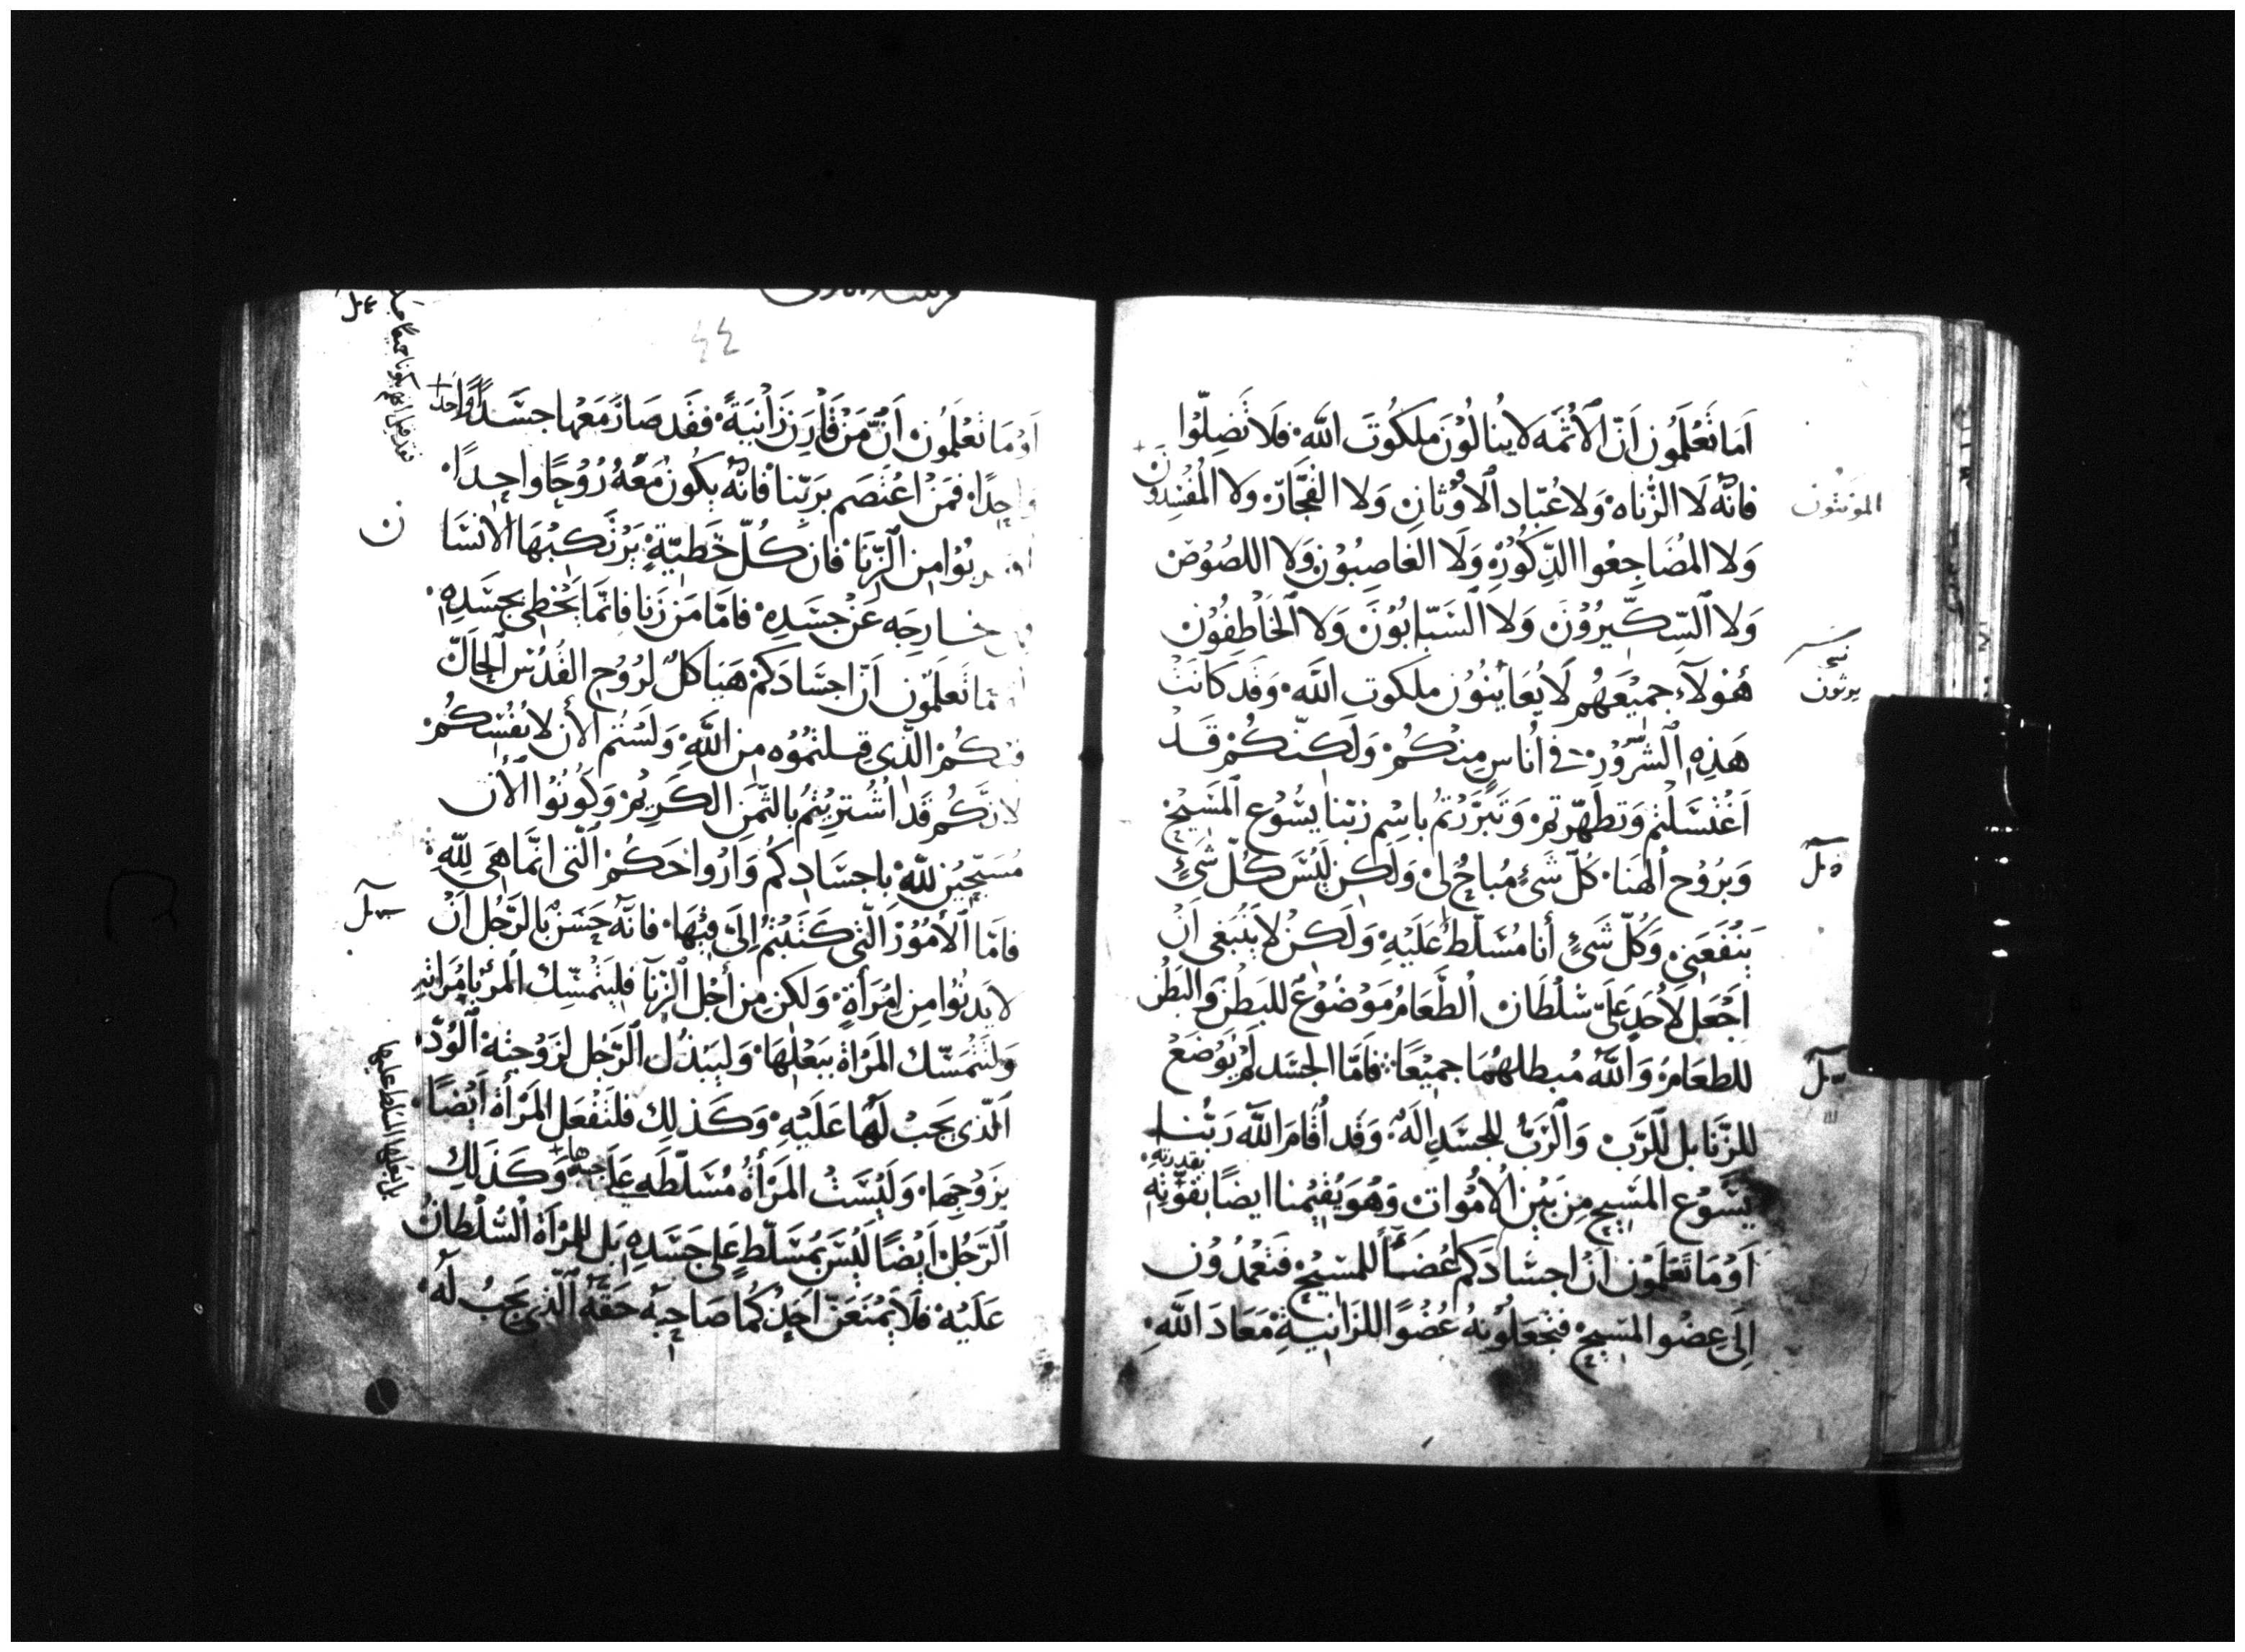 اَمَا تَعْلَمُونِ اَنّ الاَثمَه لا يُنالُوْنَ مَلكُوتَ اللّه فَلَا تَضِلّوا
فانّه لَا الزُّناه وَلا عُبّاد الاوْثانِ وَلا الفجّار وَلا المُفسِدون
المؤنثون
وَلا المُضَاجِعُوا الذّكُورِ وَلَا الغاصِبُوْن وَلا اللصُوْص
وَلا السِّكّيرُوْنَ وَلا السَبّابُوْنَ وَلا الخَاطِفُوْن
هٰوْلآء جميْعَهُم لَا يُعَايِنُوْن ملكوت اللّه وَقَد كانَت
نسخه
يرثون
هَذِهِ الشّرُوْر في اُناسٍ مِنكُمْ وَلَكِنّكُمْ قَد
اَغْتسَلْتم وَتطَهّرتم وَتَبَرّرْتمُ باسْم رَبّنا يسُوْع المسَيْح
وَبرُوْح اِلهَنا كُلّ شَيْءٍ مُباحٌ لي وَلَكِن لَيْسَ كُلّ شَيْءٍ
يَنْفَعَني وَكُلّ شَيْءٍ أنا مُسَلّط عَلَيْهِ وَلَكِنْ لا يَنْبَغي اَنْ
اَجْعَل لاَحَدٍ عَلَيّ سُلْطَان الطّعَامُ مَوْضُوْعٌ للبَطن وَالبَطْن
للطعَامِ وَاللّه مُبطلهُمَا جميْعًا فَامّا الجسَد لَمْ يُوْضَعْ
للزّنا بل للرّبّ وَالرّبّ للجسَدِ الَهٌ وَقَد اَقامَ اللّه رَبّنا
يسُوْع المسَيح مِنَ بَيْن الامْوات وَهُوَ يُقيْمنا ايضًا بقوّتِهِ
بقدرته
اَوْ مَا تَعْلَمُوْن اَنّ اجسَادَكم اَعْضَآءً للمسَيْح فتَعْمدُوْن
اِلَى عِضْو المسَيْح فتجعَلُوْنهُ عُضْوًا للزَانيَةِ مَعَاذَ اللّهِ
٤٤
اَوْ مَا تَعْلَمُوْن اَنّ مَنْ قارَنَ زَانيَةً فقَد صَارَ مَعَها جسَدًا وَاحدًا
وَاحِدًا فَمَنْ اعْتصَم برَبّنا فانّه يكُونُ مَعَهُ رُوْحًا وَاحِدًا
بُوْا مِن الزّنَا فان كُلّ خَطيّةٍ يَرْتكبُهَا الانسَا
ن
خارجَه عَنْ جسَدِه فامّا مَن زَنا فانّمَا يُخْطِئ بجسَدِهِ
مَا تعلمُون اَنّ اجسَادَكمْ هَيَاكلٌ لرُوْحِ القُدُس الحالّ
فيكُمْ الذي قبلتمُوْه مِن اللّهِ وَلَسْتم الآن لانفُسِكُمْ
لانّكُم قد اشْتريْتُمْ بالثّمَن الكَريْم وَكُونُوْا الآن
مُسَبّحِيْن للّهِ بِاجسَادِكُمْ وَارْوَاحكُمْ الّتي انّمَا هِيَ للّهِ
فامّا الاُمُوْر الّتي كَتَبْتُمْ اِلَيّ فِيْهَا فانّهُ حَسَنٌ بالرّجُل اَنْ
لا يَدنُوا مِن امْرَأةٍ وَلكنْ مِن أجْل الزّنا فليَتْمسّك المَرْء بامْرَاتهِ
وَلْتَتْمسّك المَرْاة ببَعْلهَا وَليَبْذُل الرّجُل لزَوْجتِهِ الوُدّ
الذي يجبُ لَهَا عَلَيْهِ وَكَذلِك فلتَفْعَل المَرْأة اَيْضًا
بزَوْجِهَا وَلَيْسَتْ المَرْأةُ مُسَلّطَةٍ عَلَى جسَدها وَكَذَلِك
بل لبعلها السلط عليها
الرّجُلْ اَيْضًا لَيْسَ بمُسَلّطٍ عَلى جسَدِهِ بَل للمَرْاة السُّلْطَانُ
عَلَيْه فَلَا يَمْنَعَنّ اَحَدٌكمَا صَاحِبَهُ حَقّهُ الذي يَجبُ لَه